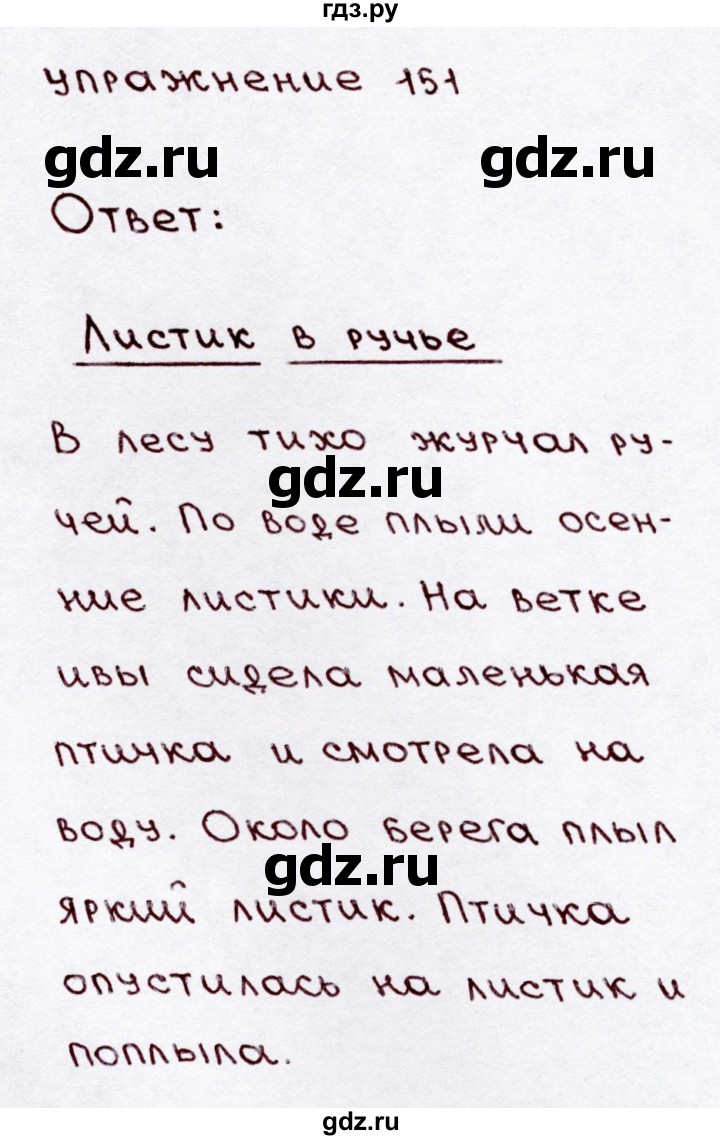 гдз.ру
упражнение 151
gdz.ru gdz.ru
Ответ:
Листик в ручье
В лесу тихо журчал ру-
gdz.ru
чей. По воде плыли осен-
ние листики. На ветке
ивы сидела маленькая
птичка и смотрела на
воду. Около берега плыл
gdz.ru
яркий листик. Птичка
опустилась на листик и
поплыла.
gdz.ru